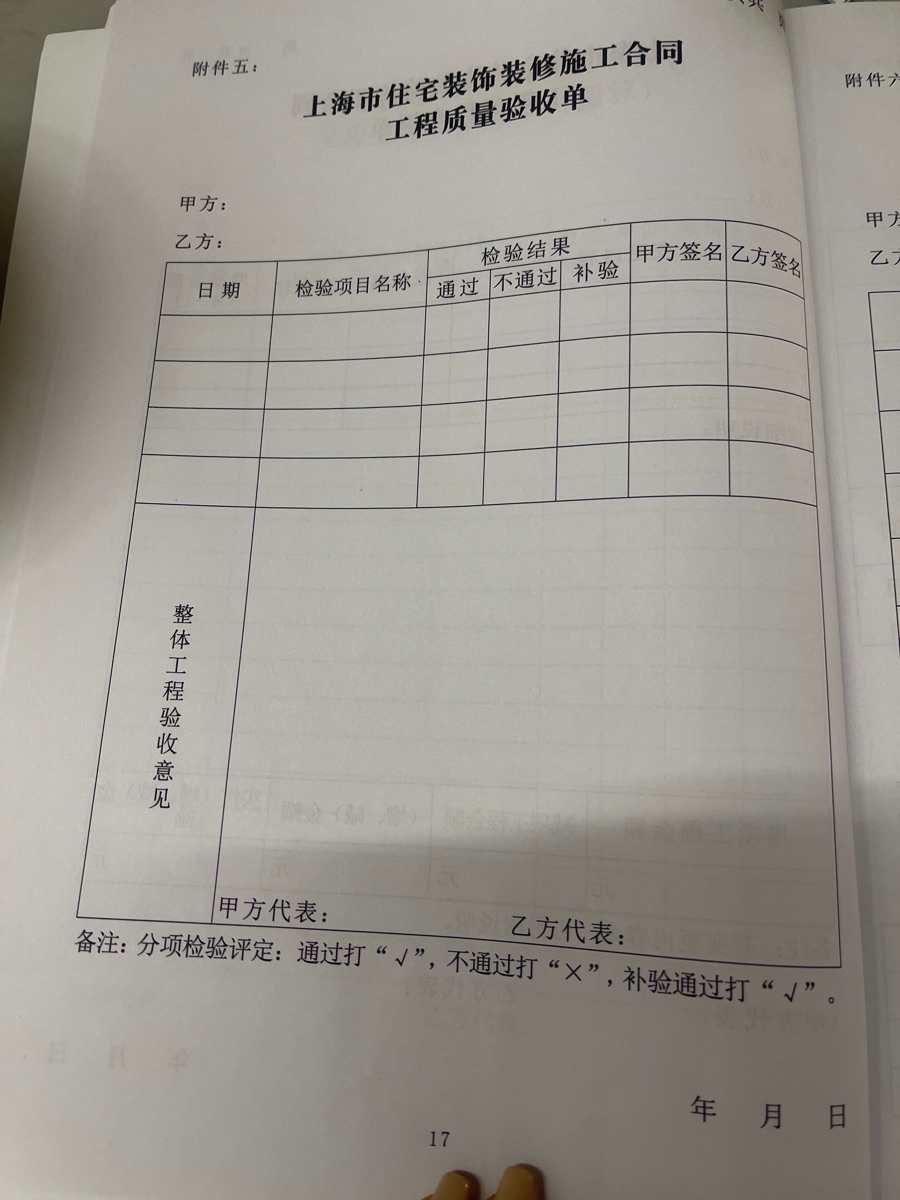 附件五：
上海市住宅装饰装修施工合同
工程质量验收单
甲方：
乙方：
日期 检验项目名称 检验结果 甲方签名 乙方签名
通过 不通过 补验
整体工程验收意见
甲方代表： 乙方代表：
备注：分项检验评定：通过打“√”，不通过打“×”，补验通过打“√”。
年 月 日
17
附件六
甲方